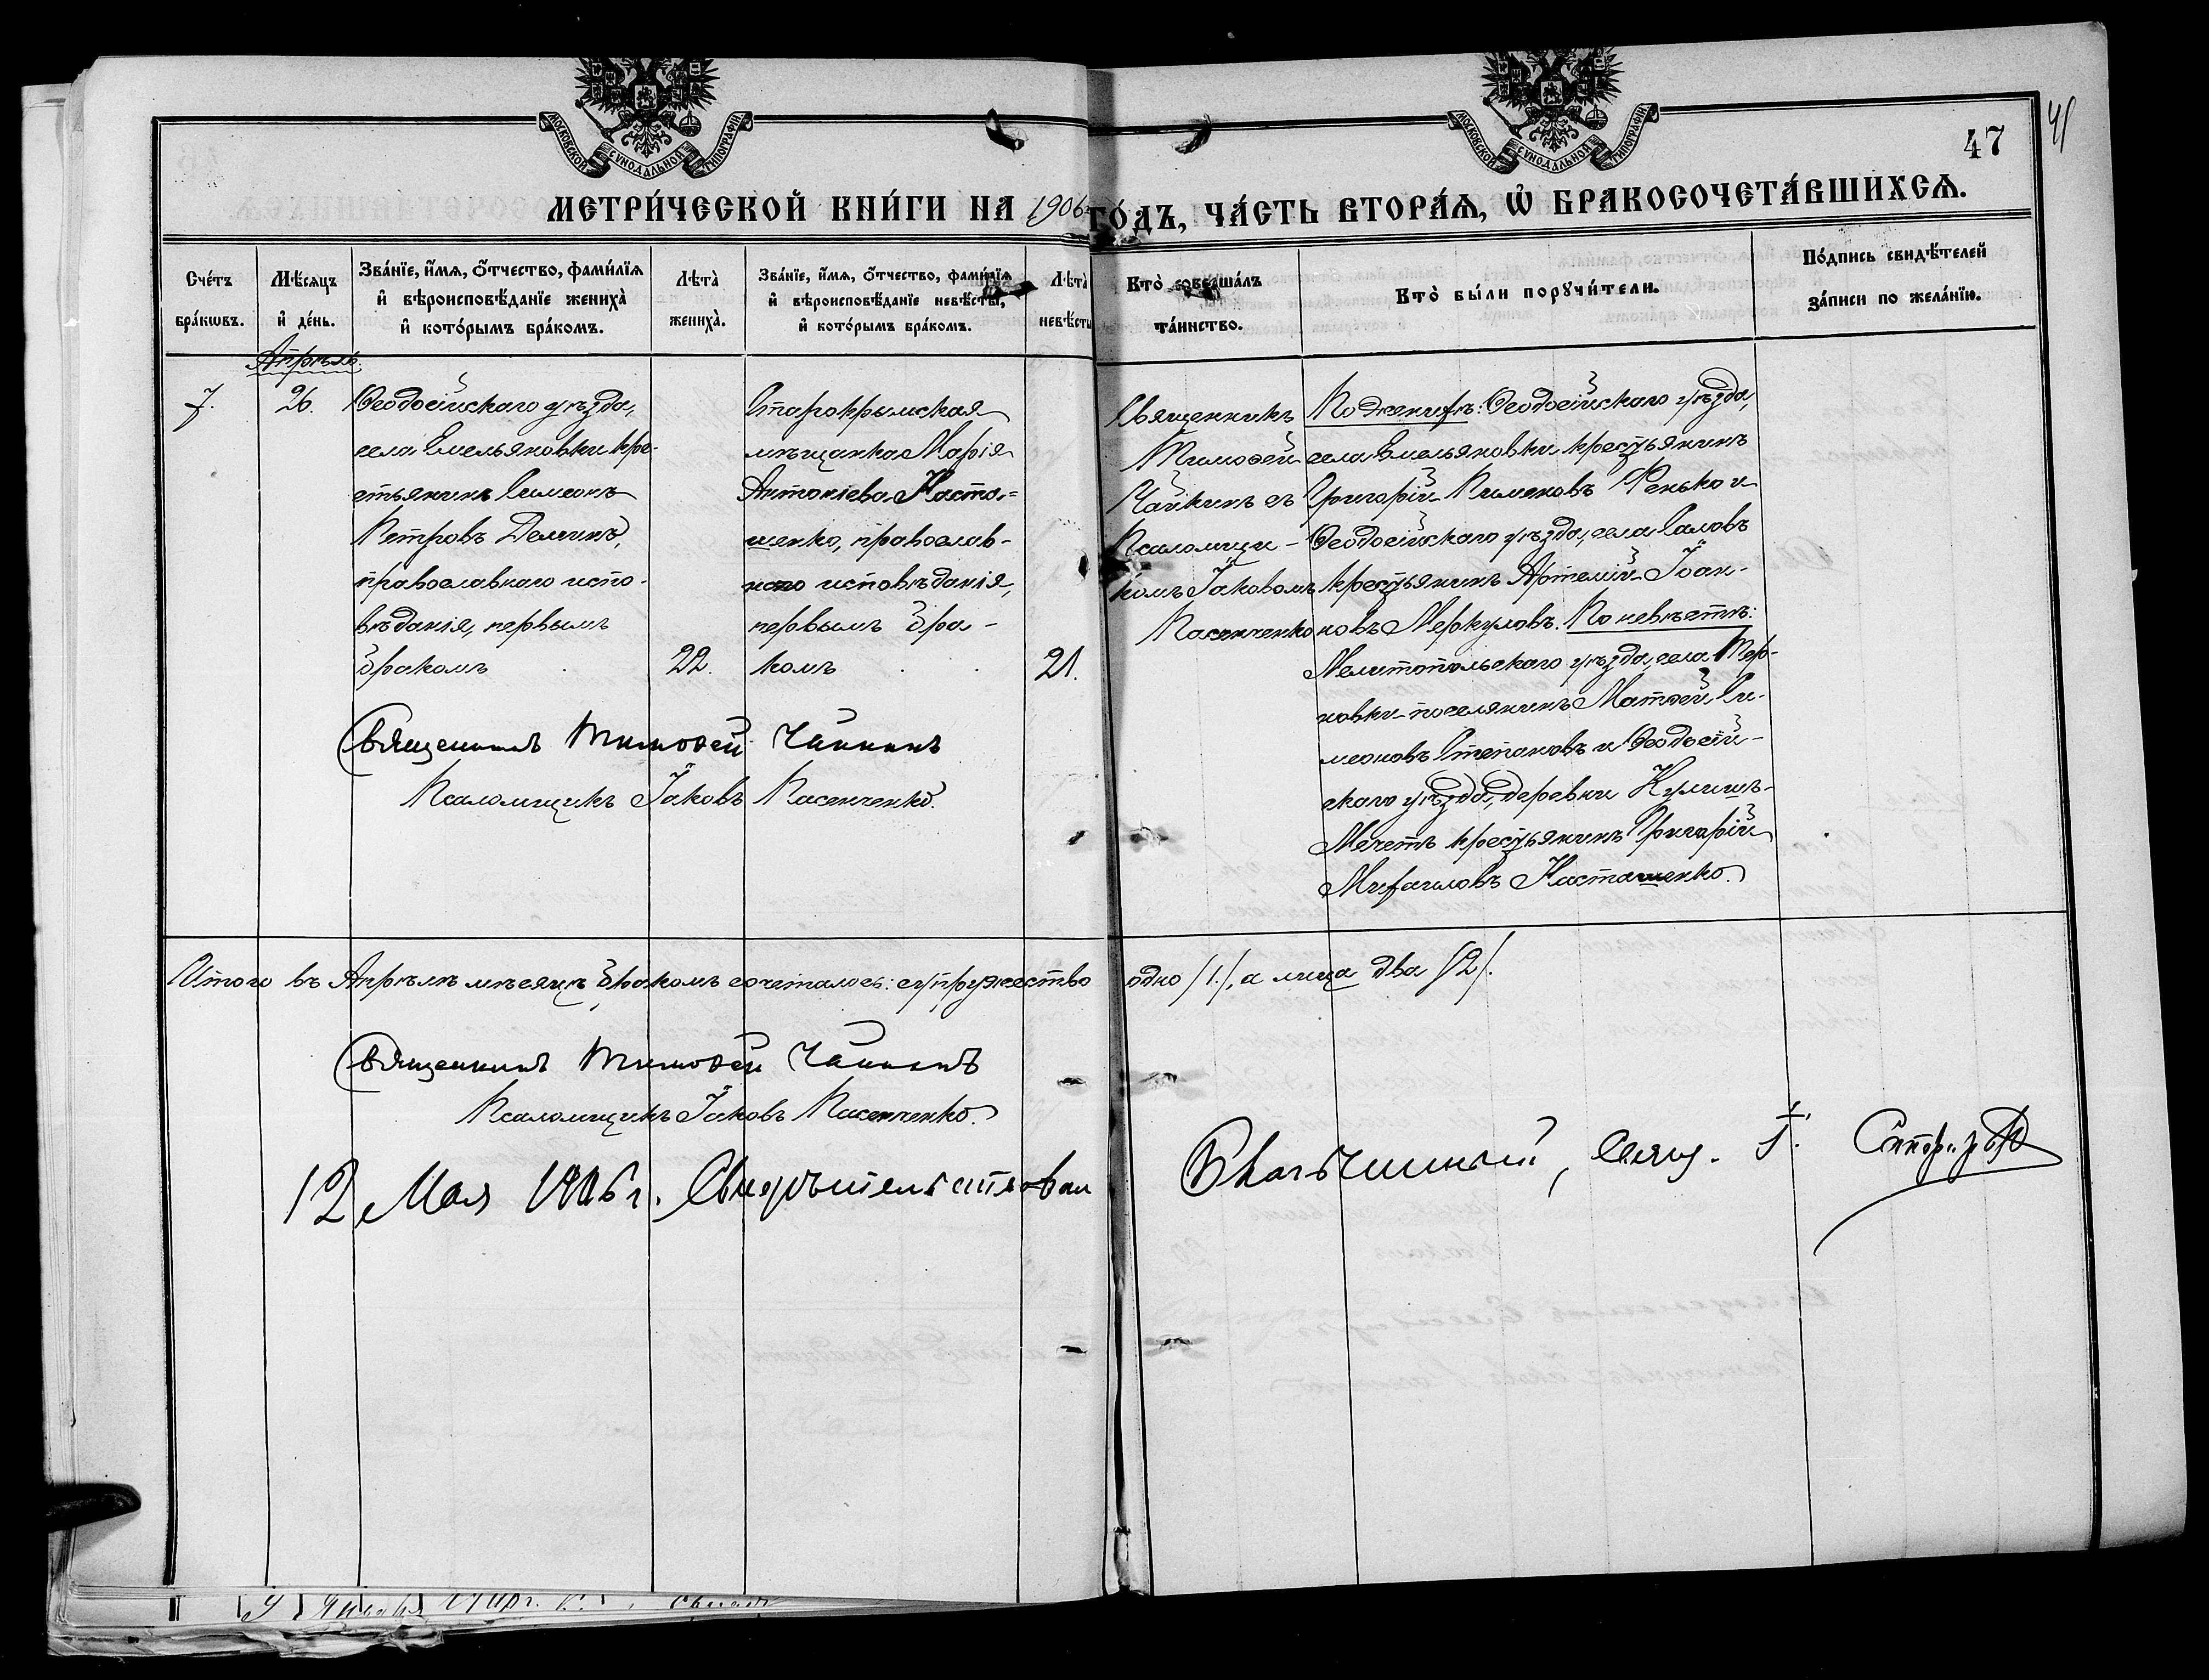 МОСКОВСКОЙ СѴНОДАЛЬНОЙ ТИПОГРАФІИ
МОСКОВСКОЙ СѴНОДАЛЬНОЙ ТИПОГРАФІИ
47
МЕТРИ́ЧЕСКОЙ КНИ́ГИ НА 1906 ГО́ДЪ, ЧА́СТЬ ВТОРА́Ѧ, Ѡ҆ БРАКОСОЧЕТА́ВШИХСѦ.
Сче́тъ
бра́кѡвъ.
Мѣ́сяцъ
и҆ де́нь.
Зва́нїе, и҆́мѧ, ѻ҆́тчество, фами́лїѧ
и҆ вѣроисповѣ́данїе жениха̀
и҆ кото́рымъ бра́комъ.
Лѣта̀
жениха̀.
Зва́нїе, и҆́мѧ, ѻ҆́тчество, фами́лїѧ
и҆ вѣроисповѣ́данїе невѣ́сты,
и҆ кото́рымъ бра́комъ.
Лѣта̀
невѣ́сты
Кто̀ соверша́лъ
та́инство.
Кто̀ бы́ли порꙋчи́тели.
По́дпись свидѣ́телей
за́писи по жела́нїю.
Апрѣль.
7.
26.
Ѳеодосійскаго уѣзда,
села Емельяновки кре-
стьянинъ Симеонъ
Петровъ Деминъ,
православнаго испо-
вѣданія, первымъ
бракомъ
22.
Старокрымская
мѣщанка Марія
Антоніева Наста-
шенко, православ-
наго исповѣданія,
первымъ бра-
комъ
21.
Священникъ
Тимоѳей
Чайкинъ съ
Псаломщи-
комъ Іаковомъ
Пасенченко
По женихѣ: Ѳеодосійскаго уѣзда,
села Емельяновки крестьянинъ
Григорій Фенько и
Ѳеодосійскаго уѣзда, села Саловъ
крестьянинъ Артемій Іоан-
новъ Меркуловъ. По невѣстѣ:
Мелитопольскаго уѣзда, села Тер-
новки поселянинъ Матѳей Си-
меоновъ Степановъ и Ѳеодосій-
скаго уѣзда, деревни Кулишъ-
Мечеть крестьянинъ Григорій
Михаиловъ Насташенко.
Священникъ Тимоѳей Чайкинъ
Псаломщикъ Іаковъ Пасенченко.
Итого въ Апрѣлѣ мѣсяцѣ бракомъ сочеталось: супружество одно /1./, а лица два /2/.
Священникъ Тимоѳей Чайкинъ
Псаломщикъ Іаковъ Пасенченко.
12 Мая 1906 г. Свидѣтельствовал Благочинный, Свящ. І.